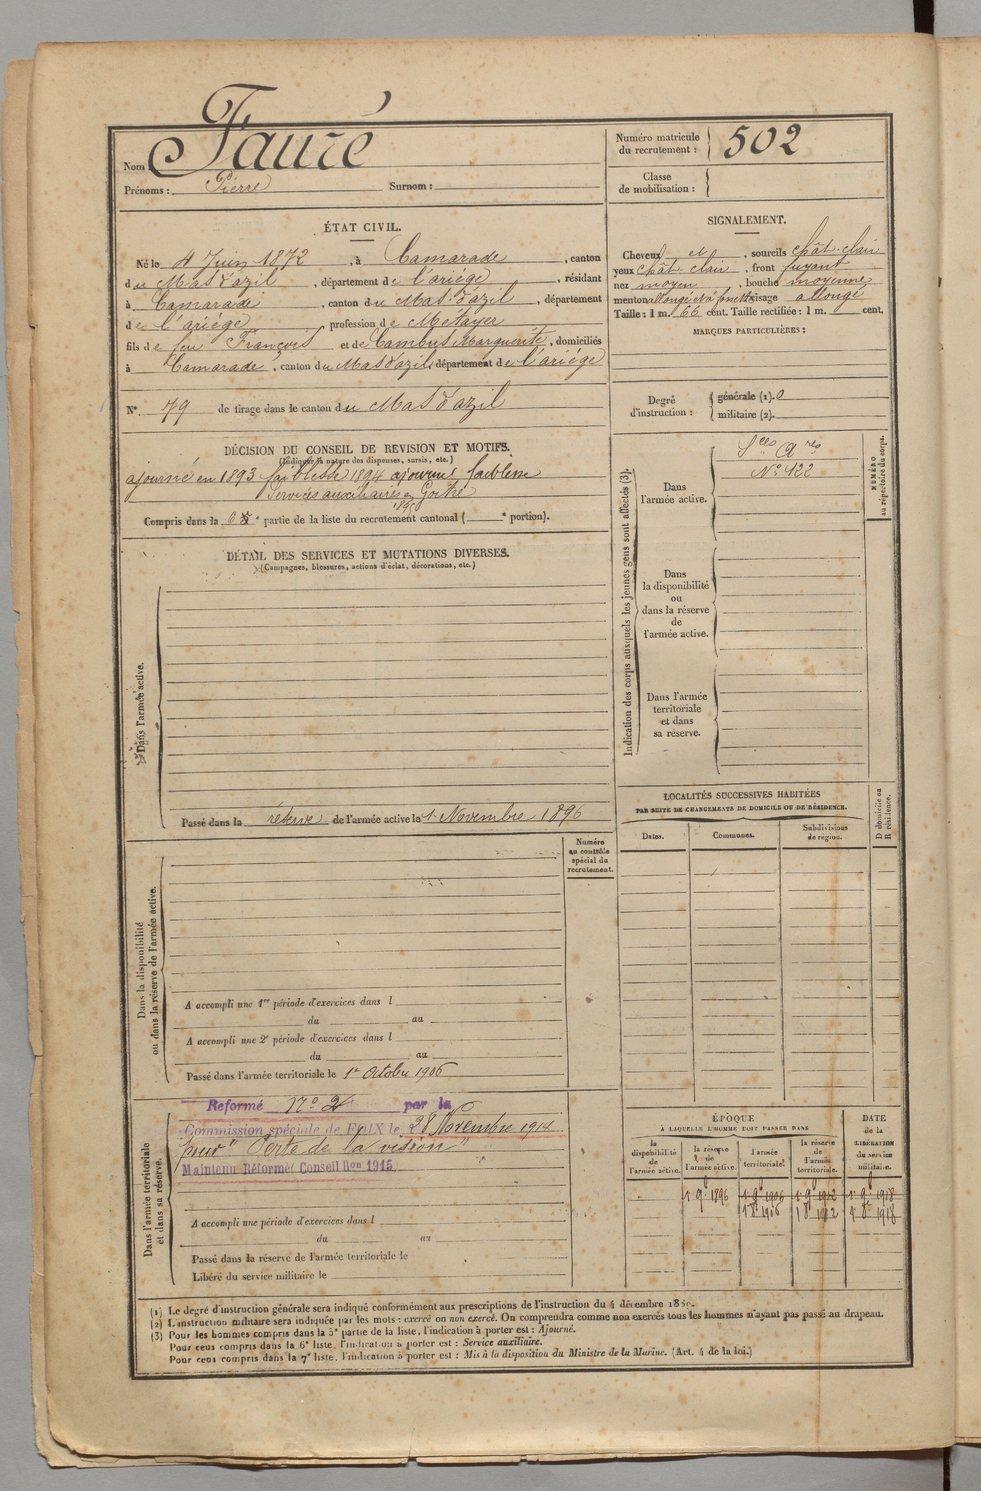 Nom Fauré
Prénoms : Pierre Surnom :
Numéro matricule du recrutement : 502
Classe de mobilisation :
ÉTAT CIVIL.
Né le 4 Juin 1872, à Camarade, canton
du Mas d'azil, département de l'ariége, résidant
à Camarade, canton du Mas d'azil, département
de l'ariége, profession de Métayer
fils de feu François et de Cambus Marguerite, domiciliés
à Camarade, canton du Mas d'azil, département de l'ariége
N°. 79 de tirage dans le canton du Mas d'azil
SIGNALEMENT.
Cheveux et, sourcils chât. clair
yeux chât. clair, front fuyant
nez moyen, bouche moyenne
menton allongé à fossette visage allongé
Taille : 1 m. 66 cent. Taille rectifiée : 1 m. cent.
MARQUES PARTICULIÈRES :
Degré d'instruction : générale (1). 0
militaire (2).
DÉCISION DU CONSEIL DE REVISION ET MOTIFS.
(Indiquer la nature des dispenses, sursis, etc.)
ajourné en 1893 faiblesse 1894 ajourné faiblesse
Services auxiliaires Goitre
1895
Compris dans la 6e partie de la liste du recrutement cantonal ( e portion).
DÉTAIL DES SERVICES ET MUTATIONS DIVERSES.
(Campagnes, blessures, actions d'éclat, décorations, etc.)
Dans l'armée active.
Passé dans la réserve de l'armée active le 1 Novembre 1896
Indication des corps auxquels les jeunes gens sont affectés (3).
Dans l'armée active.
Sces Ares
N° 122
NUMÉRO au répertoire du corps.
Dans la disponibilité ou dans la réserve de l'armée active.
Dans l'armée territoriale et dans sa réserve.
LOCALITÉS SUCCESSIVES HABITÉES
PAR SUITE DE CHANGEMENTS DE DOMICILE OU DE RÉSIDENCE.
Dates. Communes. Subdivisions de région. D domicile ou R résidence.
Numéro au contrôle spécial du recrutement.
Dans la disponibilité ou dans la réserve de l'armée active.
A accompli une 1re période d'exercices dans l
du au
A accompli une 2e période d'exercices dans l
du au
Passé dans l'armée territoriale le 1er Octobre 1906
Dans l'armée territoriale et dans sa réserve.
Réformé N° 2 par la
Commission spéciale de FOIX le 28 Novembre 1914
pour "Perte de la vision"
Maintenu Réformé Conseil Ron 1915
A accompli une période d'exercices dans l
du au
Passé dans la réserve de l'armée territoriale le
Libéré du service militaire le
ÉPOQUE
À LAQUELLE L'HOMME DOIT PASSER DANS
la disponibilité de l'armée active. la réserve de l'armée active. l'armée territoriale. la réserve de l'armée territoriale.
DATE de la LIBÉRATION du service militaire.
1 9 1896 1 9 1906 1 9 1912 1 9 1918
1 8 1906 1 8 1912 1 8 1918
(1) Le degré d'instruction générale sera indiqué conformément aux prescriptions de l'instruction du 4 décembre 18
(2) L'instruction militaire sera indiquée par les mots : exercé ou non exercé. On comprendra comme non exercés tous les hommes n'ayant pas passé au drapeau.
(3) Pour les hommes compris dans la 5e partie de la liste, l'indication à porter est : Ajourné.
Pour ceux compris dans la 6e liste, l'indication à porter est : Service auxiliaire.
Pour ceux compris dans la 7e liste, l'indication à porter est : Mis à la disposition du Ministre de la Marine. (Art. 4 de la loi.)